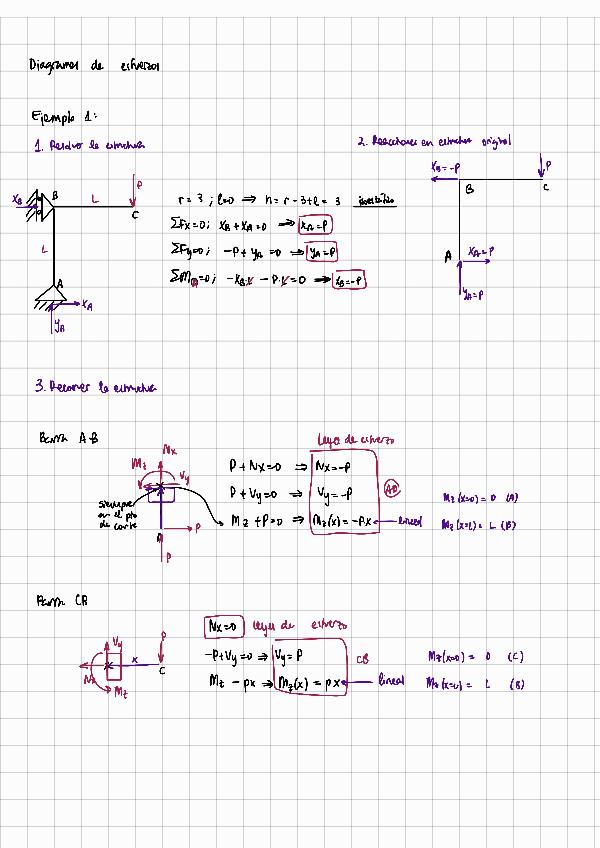 Diagramas de esfuerzos
Ejemplo 1:
1. Resolver la estructura
2. Reacciones en estructura original
X_B
B
L
P
C
L
A
X_A
Y_A
r = 3 ; l=0 ⟹ h = r - 3 + l = 3 isostático
ΣFx=0; X_B + X_A = 0 ⟹ X_A = P
ΣFy=0; -P + Y_A = 0 ⟹ Y_A = P
ΣM_A=0; -X_B·L - P·L = 0 ⟹ X_B = -P
X_B = -P
P
B
C
A
X_A = P
Y_A = P
3. Recorrer la estructura
Barra A-B
Nx
Mz
Vy
siempre
en el pto
de corte
A
P
P
Leyes de esfuerzo
P + Nx = 0 ⟹ Nx = -P
P + Vy = 0 ⟹ Vy = -P
AB
Mz + P = 0 ⟹ Mz(x) = -Px lineal
Mz(x=0) = 0 (A)
Mz(x=L) = L (B)
Barra CB
Vy
P
x
C
Nx
Mz
Nx=0 Leyes de esfuerzo
-P + Vy = 0 ⟹ Vy = P
CB
Mz - Px ⟹ Mz(x) = Px lineal
Mz(x=0) = 0 (C)
Mz(x=L) = L (B)